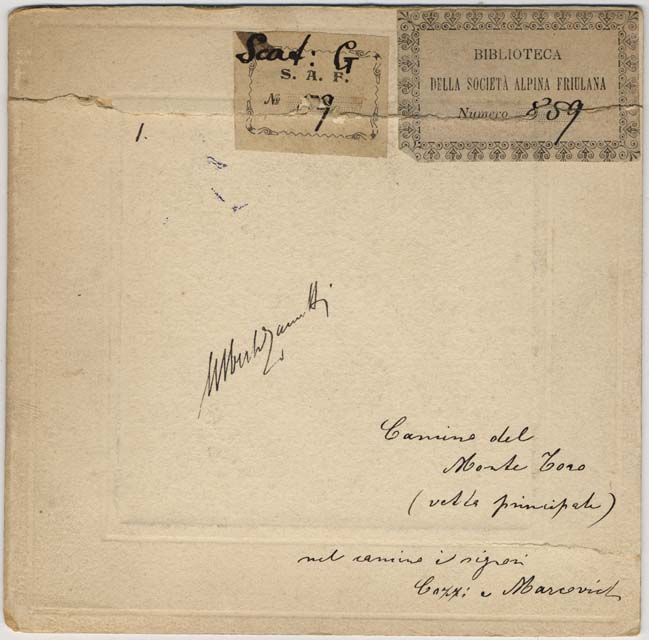 Scat: G
S. A. F.
№ 79
BIBLIOTECA
DELLA SOCIETÀ ALPINA FRIULANA
Numero 859
1.
Camino del
Monte Toro
(vetta principale)
nel camino i signori
Cozzi e Marcovich